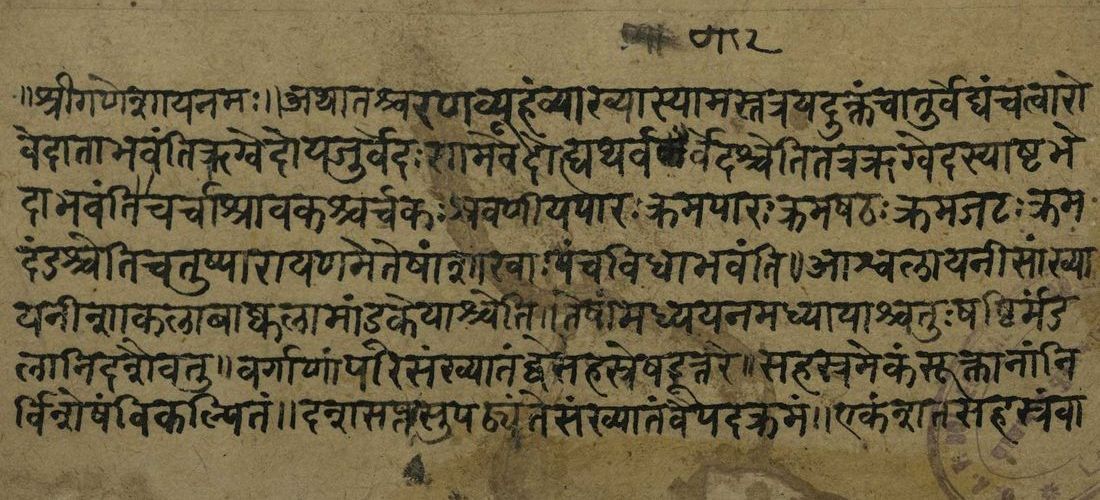 ॥श्रीगणेशायनमः॥अथातश्चरणव्यूहंव्याख्यास्यामस्तत्रयदुक्तंचातुर्वेद्यंचत्वारो
वेदाताभवंतिऋग्वेदोयजुर्वेदः सामवेदोह्यथर्ववेदश्चेतितत्रऋग्वेदस्याष्टभे
दाभवंति॥चर्चाश्रावकश्चर्चकः श्रवणीयपारः क्रमपारः क्रमषठः क्रमजटः क्रम
दंडश्चेतिचतुष्पारायणमेतेषांशाखाः पंचविधाभवंति॥आश्वलायनीसांख्या
यनीशाकलाबाष्कलामांडुकेयाश्चेति॥तेषांमध्ययनमध्यायाश्चतुःषष्टिर्मंड
लानिदशैवतु॥वर्गाणांपरिसंख्यातंद्वेसहस्रेषडुत्तरे॥सहस्रमेकंसूक्तानांनि
र्विशेषंविकल्पितं॥दशसप्तसुपठ्यंतेसंख्यातंवैपदक्रमं॥एकंशतसहस्रंवा